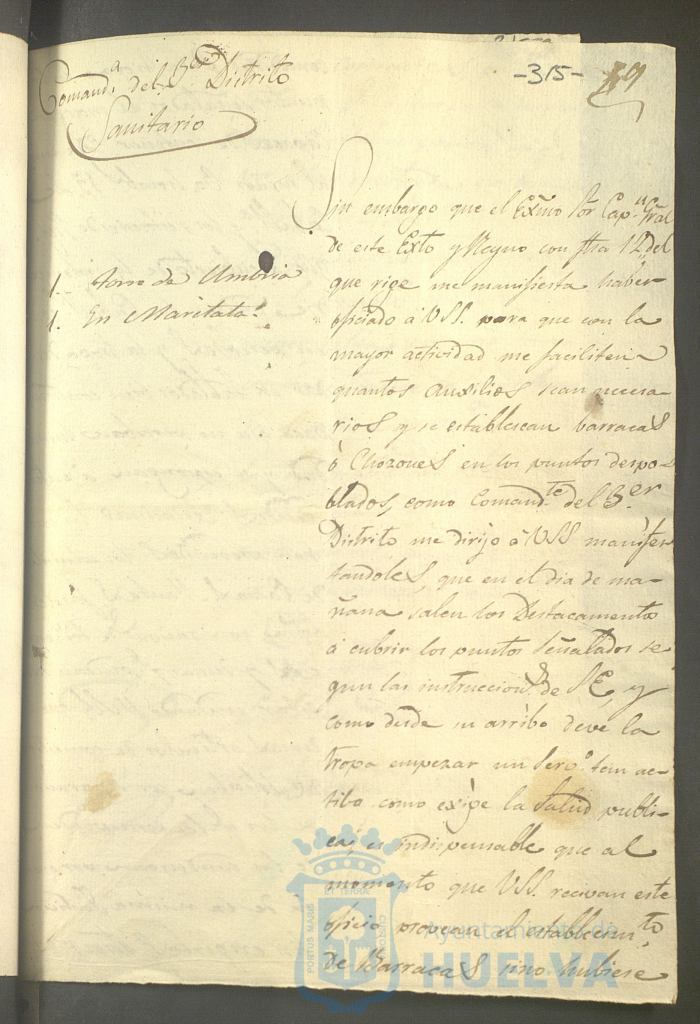 -315- 19
Comand.ª del 3.er Distrito
Sanitario
1. Torre de Umbria
1. En Maritata.
Sin embargo que el Exmo Sor Cap.n Gral
de este Exto y Reyno con fha 12 del
que rige me manifiesta haber
oficiado á VSS. para que con la
mayor actividad me faciliten
quantos auxilios sean necesa-
rios y se establescan barracas
ó Chozones en los puntos despo-
blados, como Comand.te del 3.er
Distrito me dirijo á VSS manifes
tandoles, que en el dia de ma-
ñana salen los Destacamentos
á cubrir los puntos señalados se
gun las instruccion.s de SE, y
como desde su arribo deve la
tropa empezar un serv.o tan ac-
tibo como exije la salud publi-
ca, es indispensable que al
momento que VSS. recivan este
oficio provean el establecim.to
de Barracas sino hubiese
PORTUS MARIS
ET TERRAE
CUSTODIA
Ayuntamiento de
HUELVA